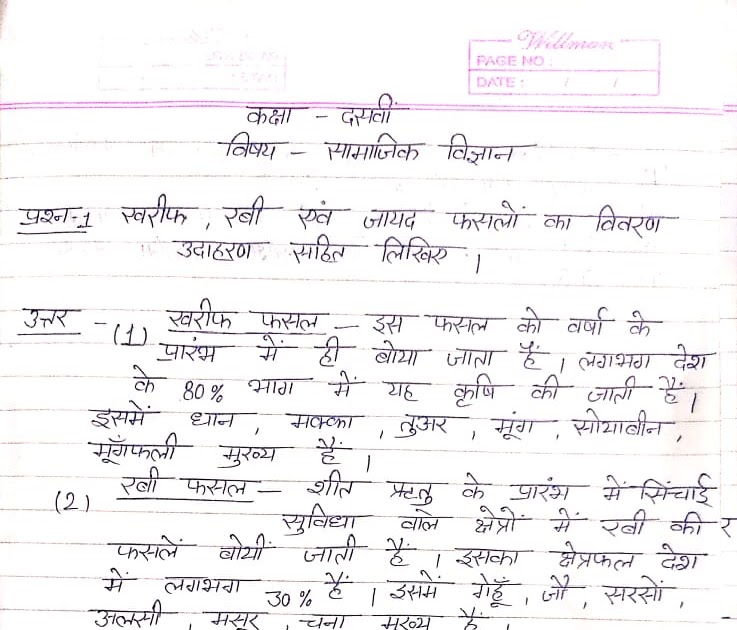 Willman
PAGE NO :
DATE : / /
कक्षा - दसवीं
विषय - सामाजिक विज्ञान
प्रश्न-1 खरीफ, रबी एवं जायद फसलों का विवरण
उदाहरण सहित लिखिए।
उत्तर - (1) खरीफ फसल - इस फसल को वर्षा के
प्रारंभ में ही बोया जाता हैं। लगभग देश
के 80% भाग में यह कृषि की जाती हैं।
इसमें धान, मक्का, तुअर, मूंग, सोयाबीन,
मूँगफली मुख्य हैं।
(2) रबी फसल - शीत ऋतु के प्रारंभ में सिंचाई
सुविधा वाले क्षेत्रों में रबी की र
फसलें बोयीं जाती हैं। इसका क्षेत्रफल देश
में लगभग 30% हैं। इसमें गेहूँ, जौ, सरसों,
अलसी, मसूर, चना मुख्य हैं.